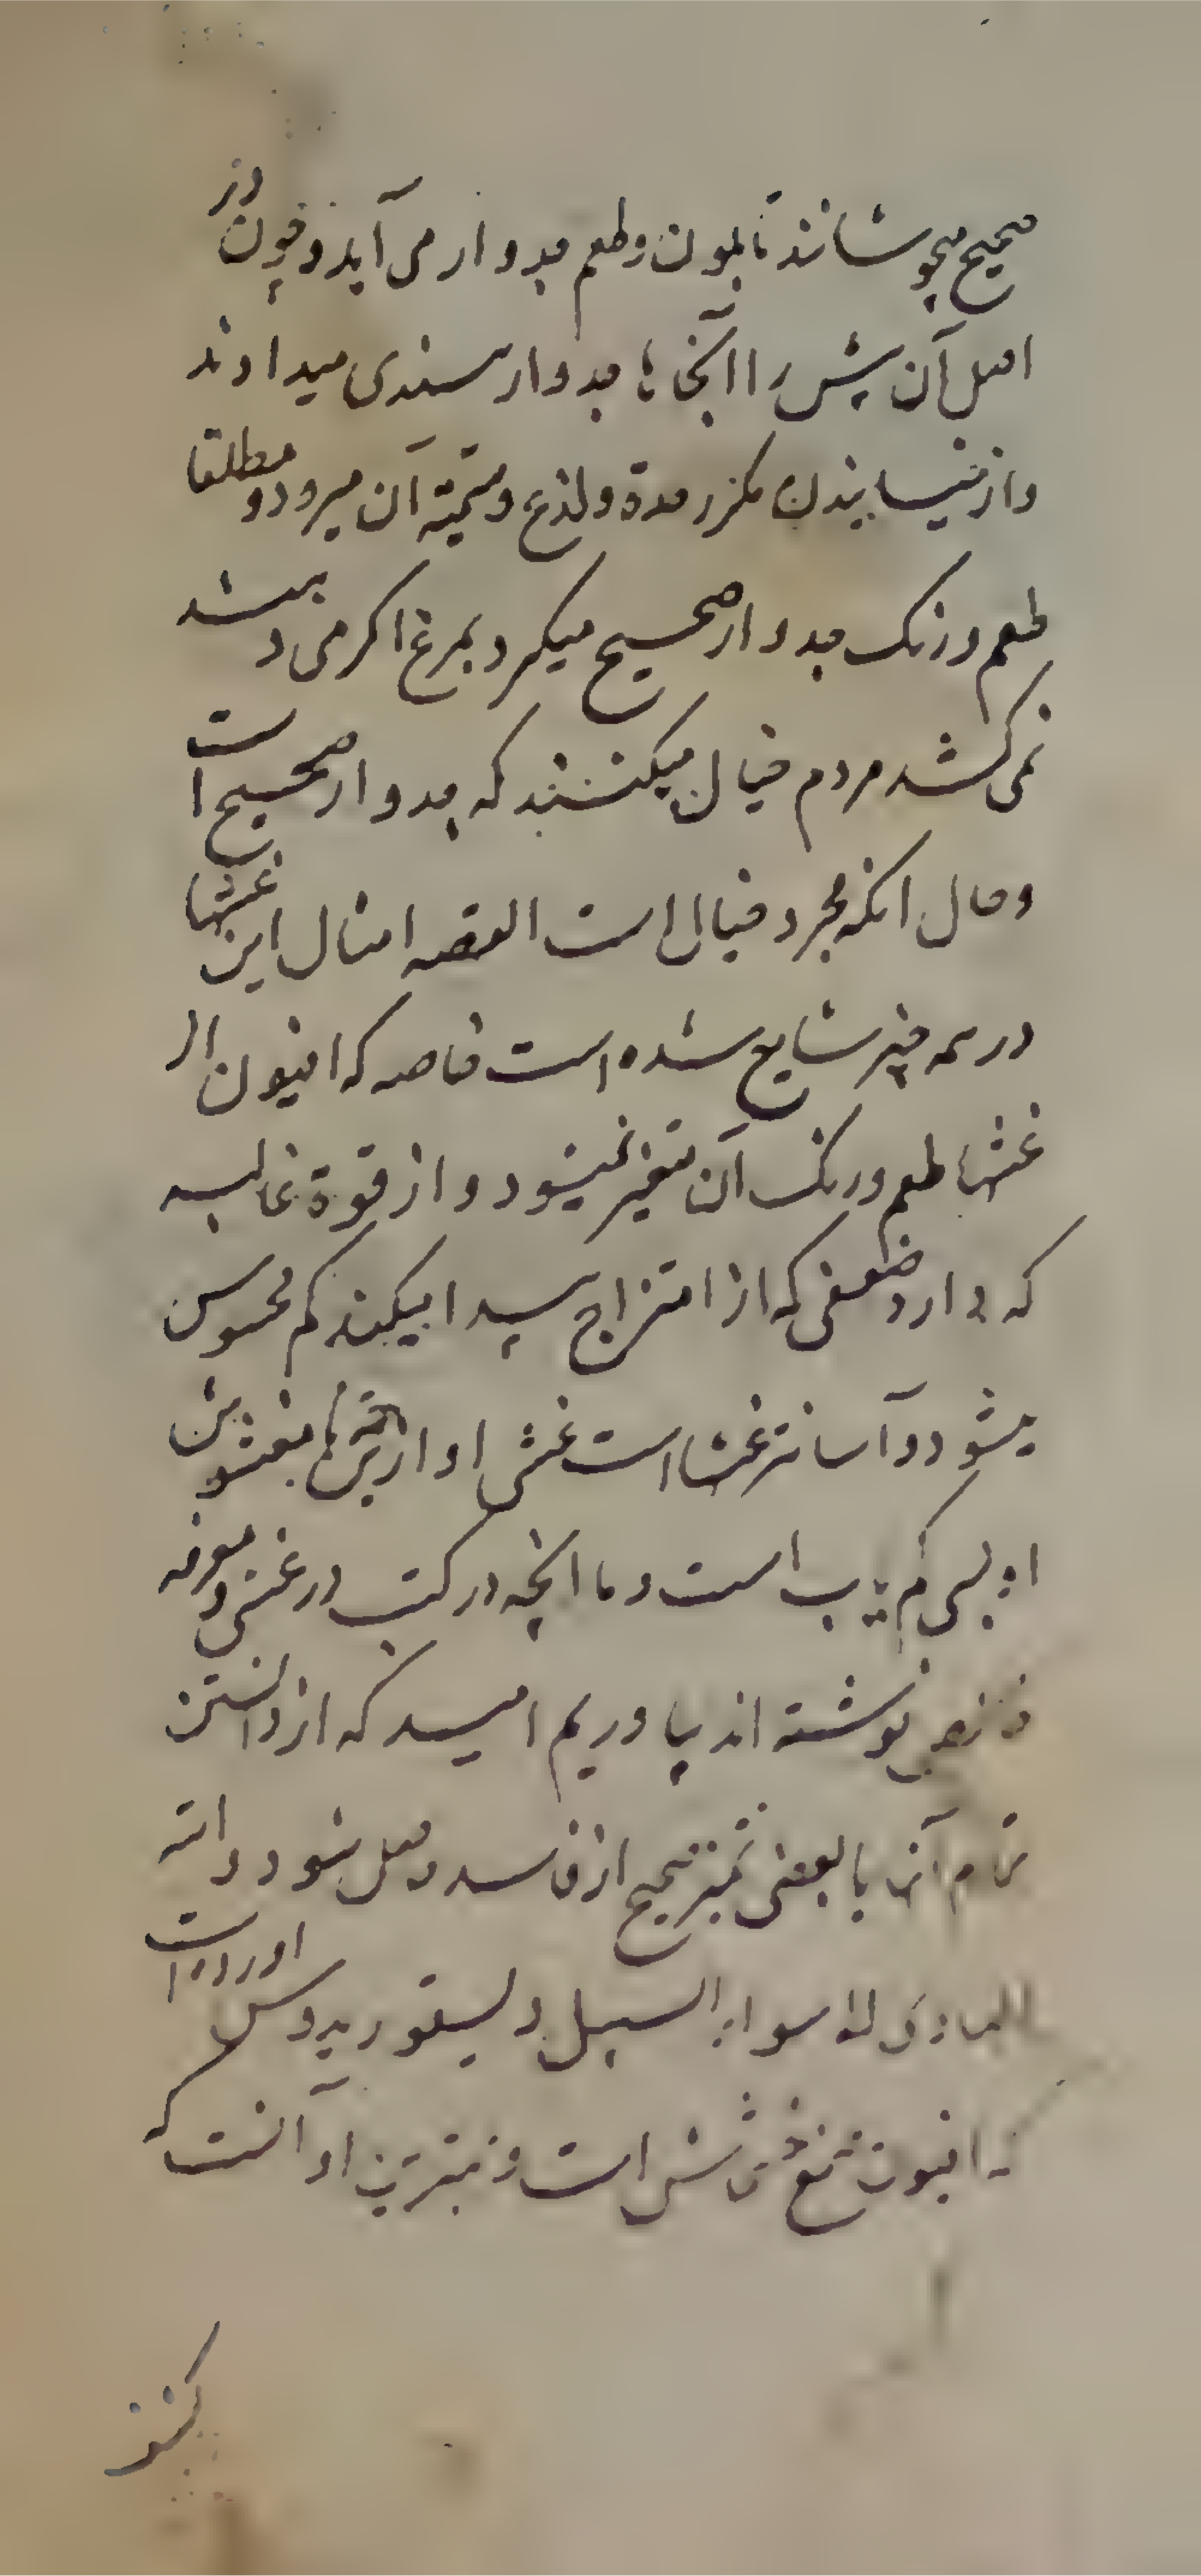 صحیح میجوشانند تا بلون و طعم جدوار می آید و چون در
اصل آن بیش را آنجا با جدوار سندی میدادند
و از خیسانیدن مکرر حدة و لذع و سمیة آن میرود و مطلقا
طعم و رنک جدوار صحیح میکرد بمرغ اکر می دهند
نمی کشد مردم خیال میکنند که جدوار صحیح است
و حال انکه مجرد خیال است القصه امثال این غشها
در همه چیز شایع شده است خاصه که افیون از
غشها طعم و رنک آن متغیر نمیشود و از قوة غالبه
که دارد ضعفی که از امتزاج پیدا میکند کم محسوس
میشود و آسانتر غشها است غش او ازین جهة نا مغشوش
او بسی کم یاب است و ما انچه در کتب در غش و معرفه
خالص نوشته اند بیاوریم امید که از دانستن
تمام آن یا بعضی تمیز صحیح از فاسد حاصل شود و الله
الهادی الی سواء السبیل دیسقوریدوس اورده است
که افیون صمغ خشخاش است و بهترین او آنست که
کنز